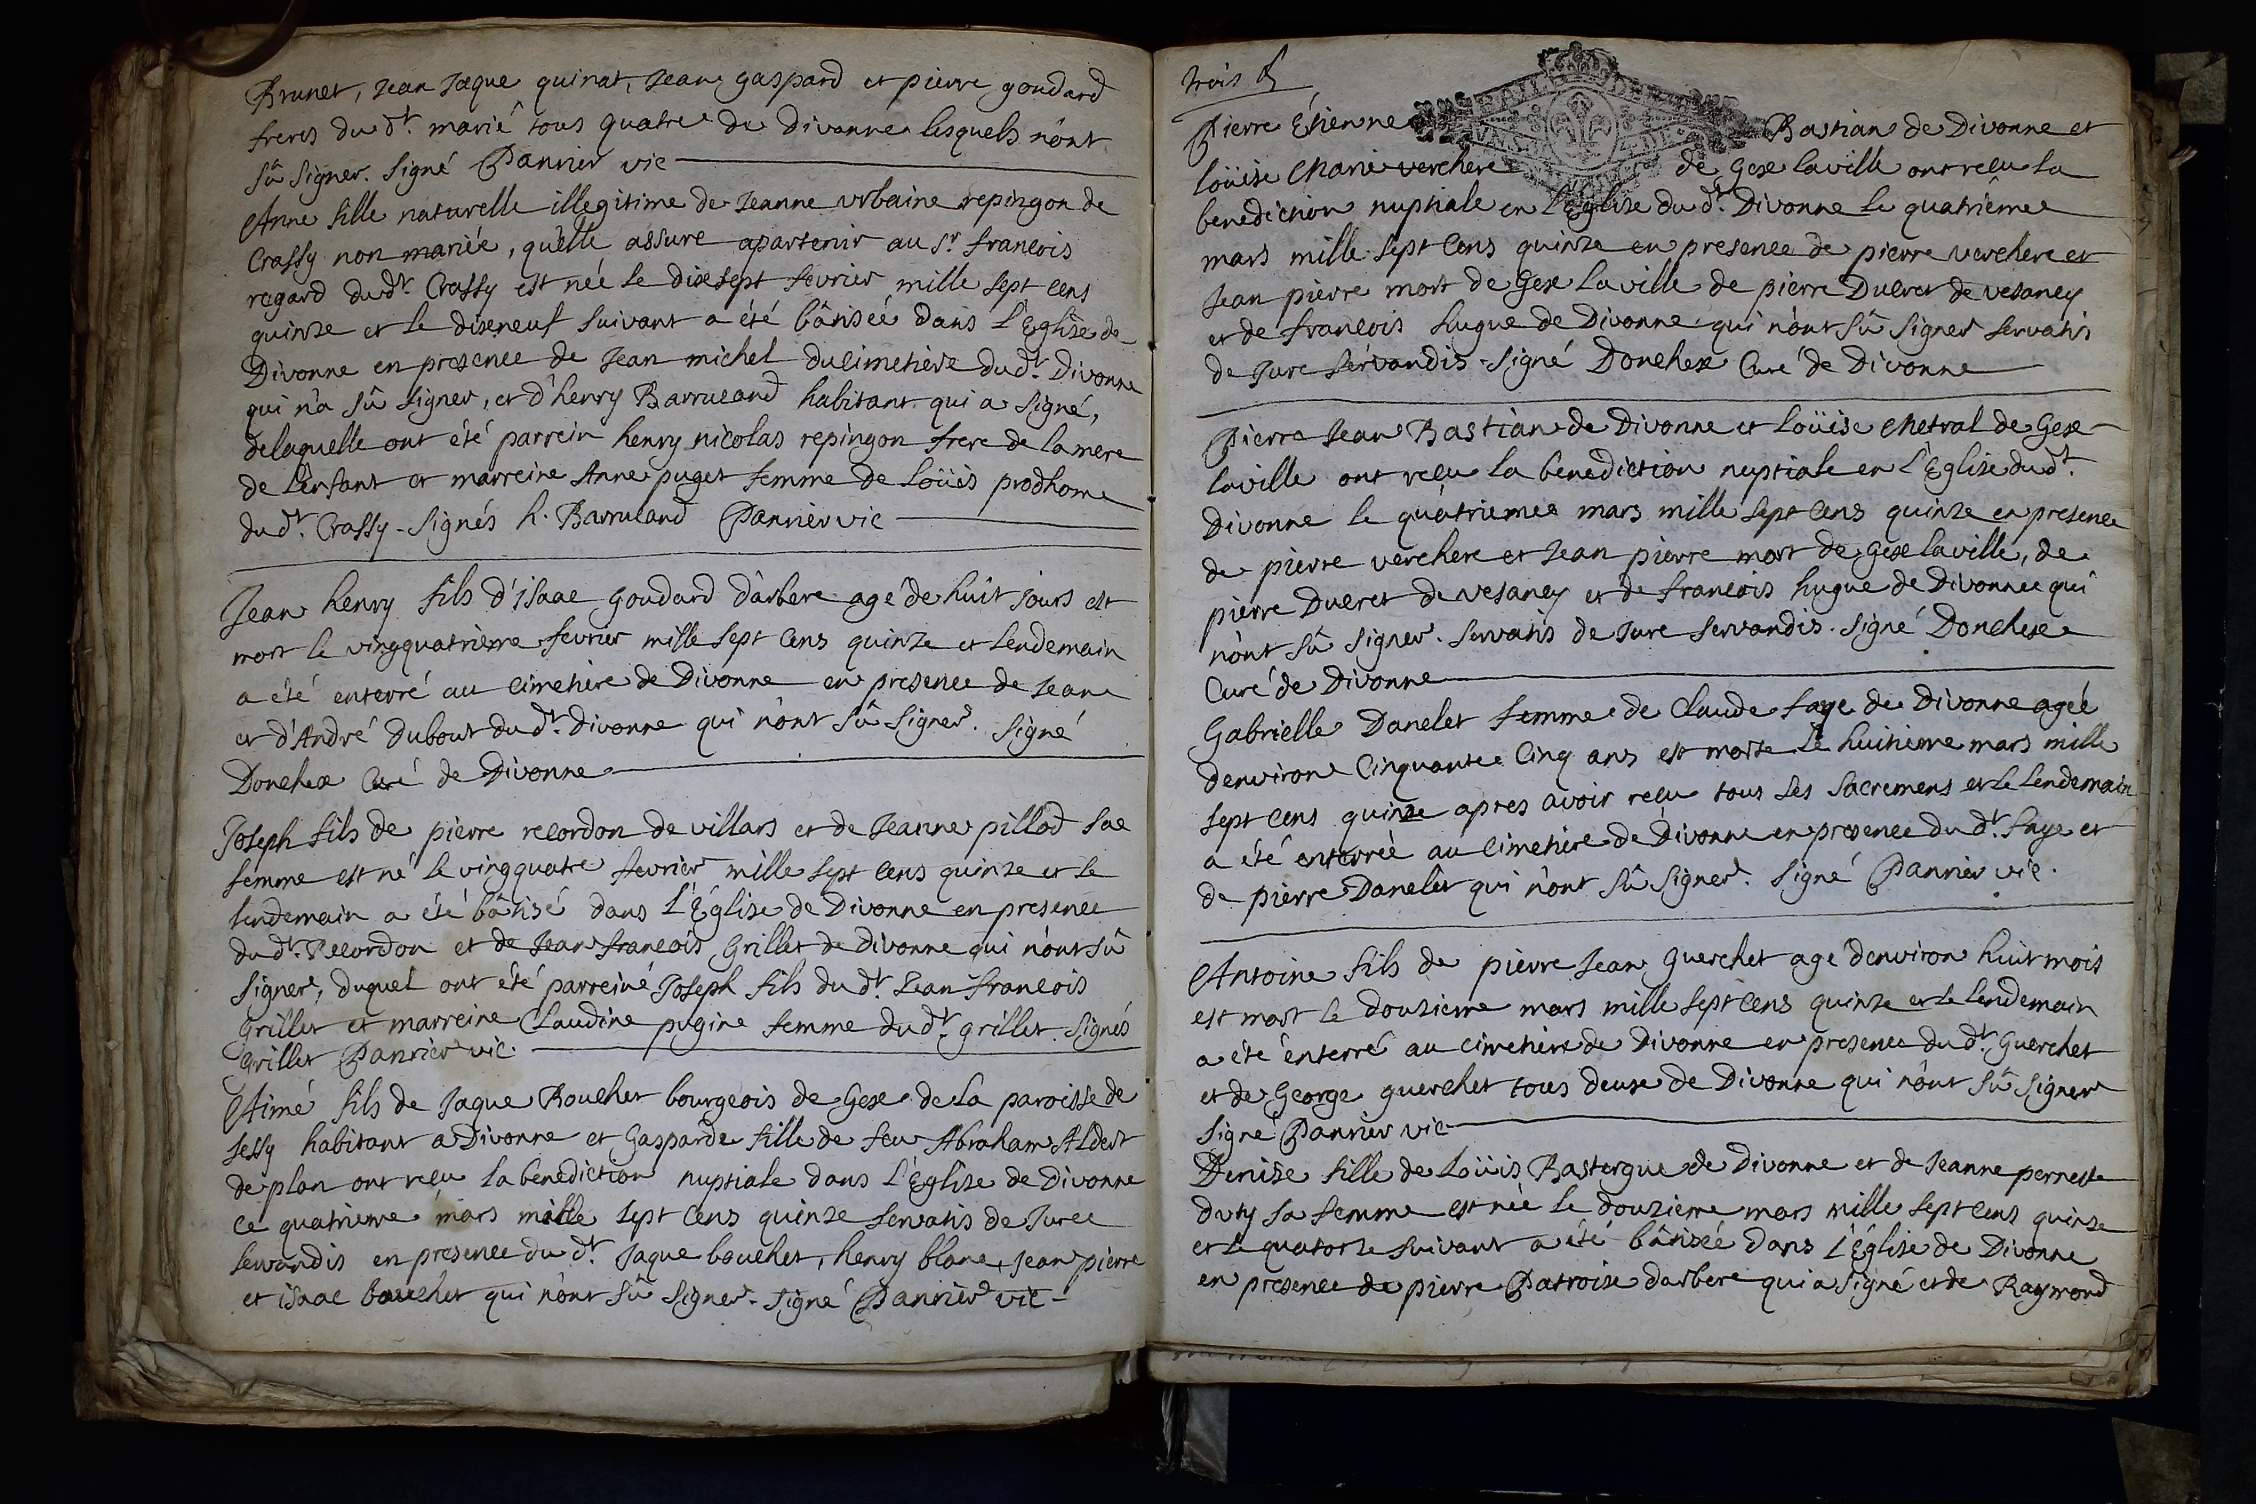 Brunet, Jean Jaque quinat, Jean gaspard et pierre goudard
freres du dt. marié tous quatre de Divonne lesquels n'ont
sû signer. signé Pannier vic
Anne fille naturelle illegitime de Jeanne urbaine repingon de
Crassy non mariée, qu'elle assure apartenir au Sr. francois
regard dudt. Crassy est née le dixsept fevrier mille sept cens
quinze et le dixneuf suivant a été bâtisée dans l'Eglise de
Divonne en presence de Jean michel ducimetiere dudt. Divonne
qui n'a sû signer, et d'henry Barruland habitant qui a signé,
delaquelle ont été parrein henry nicolas repingon frere de la mere
de l'enfant et marreine Anne puget femme de Loüis prodhome
dudt. Crassy - signés h. Barruland Pannier vic
Jean henry fils d'isaac goudard d'arbere agé de huit jours est
mort le vingquatrième fevrier mille sept cens quinze et lendemain
a été enterré au cimetiere de Divonne en presence de Jean
et d'André dubout dudt. Divonne qui n'ont sû signer. signé
Donchex Curé de Divonne
Joseph fils de pierre recordon de villars et de Jeanne pillod sae
femme est né le vingquatre fevrier mille sept cens quinze et le
lendemain a été bâtisé dans l'Église de Divonne en presence
dudt. Recordon et de Jean francois Grillet de divonne qui n'ont sû
signer, duquel ont été parreine Joseph fils du dt. Jean francois
grillet et marreine Claudine pugine femme du dt. grillet. signés
Grillet Pannier vic.
Aimé fils de Jaque Bouchet bourgeois de Gex de la paroisse de
Sessy habitant a Divonne et Gasparde fille de feu Abraham Aldert
de plan ont reçu la benediction nuptiale dans l'Eglise de Divonne
ce quatrieme mars mille sept cens quinze servatis de Juree
servandis en presence du dt. Jaque bouchet, henry blanc, Jean pierre
et isaac bouchet qui n'ont sû signer. signé Pannier vic
trois
Pierre Étienne Bastian de Divonne et
loüise Marie verchere de Gex laville ont reçu la
benediction nuptiale en l'Église du dt. Divonne le quatriême
mars mille sept cens quinze en presence de pierre verchere et
Jean pierre mort de Gex laville de pierre Ducret de vesancy
et de francois hugue de Divonne qui n'ont sû signer servatis
de Jure servandis - signé Donchex Curé de Divonne
Pierre Jean Bastian de Divonne et Loüise Metral de Gex
laville ont reçu la benediction nuptiale en l'Eglise dudt.
Divonne le quatrieme mars mille sept cens quinze en presence
de pierre verchere et Jean pierre mort de gex laville, de
pierre Ducret de vesancy et de francois hugue de Divonne qui
n'ont sû signer. servatis de Jure servandis. signé Donchex
Curé de Divonne
Gabrielle Danelet femme de Claude faye de Divonne agée
denviron Cinquante Cinq ans est morte le huitieme mars mille
sept cens quinze apres avoir reçu tous les sacremens et le lendemain
a été enterrée au cimetiere de Divonne en presence du dt. faye et
de pierre Danelet qui n'ont sû signer. signé Pannier vic.
Antoine fils de pierre Jean Guerchet agé denviron huit mois
est mort le douzieme mars mille sept cens quinze et le lendemain
a été enterré au cimetiere de Divonne en presence du dt. Guerchet
et de George guerchet tous deux de Divonne qui n'ont sû signer
signé Pannier vic
Denise fille de Loüis Bastergue de Divonne et de Jeanne pernette
duty sa femme est née le douzieme mars mille sept cens quinze
et le quatorze suivant a été bâtisée dans l'Église de Divonne
en presence de pierre Patroix darbere qui a signé et de Raymond